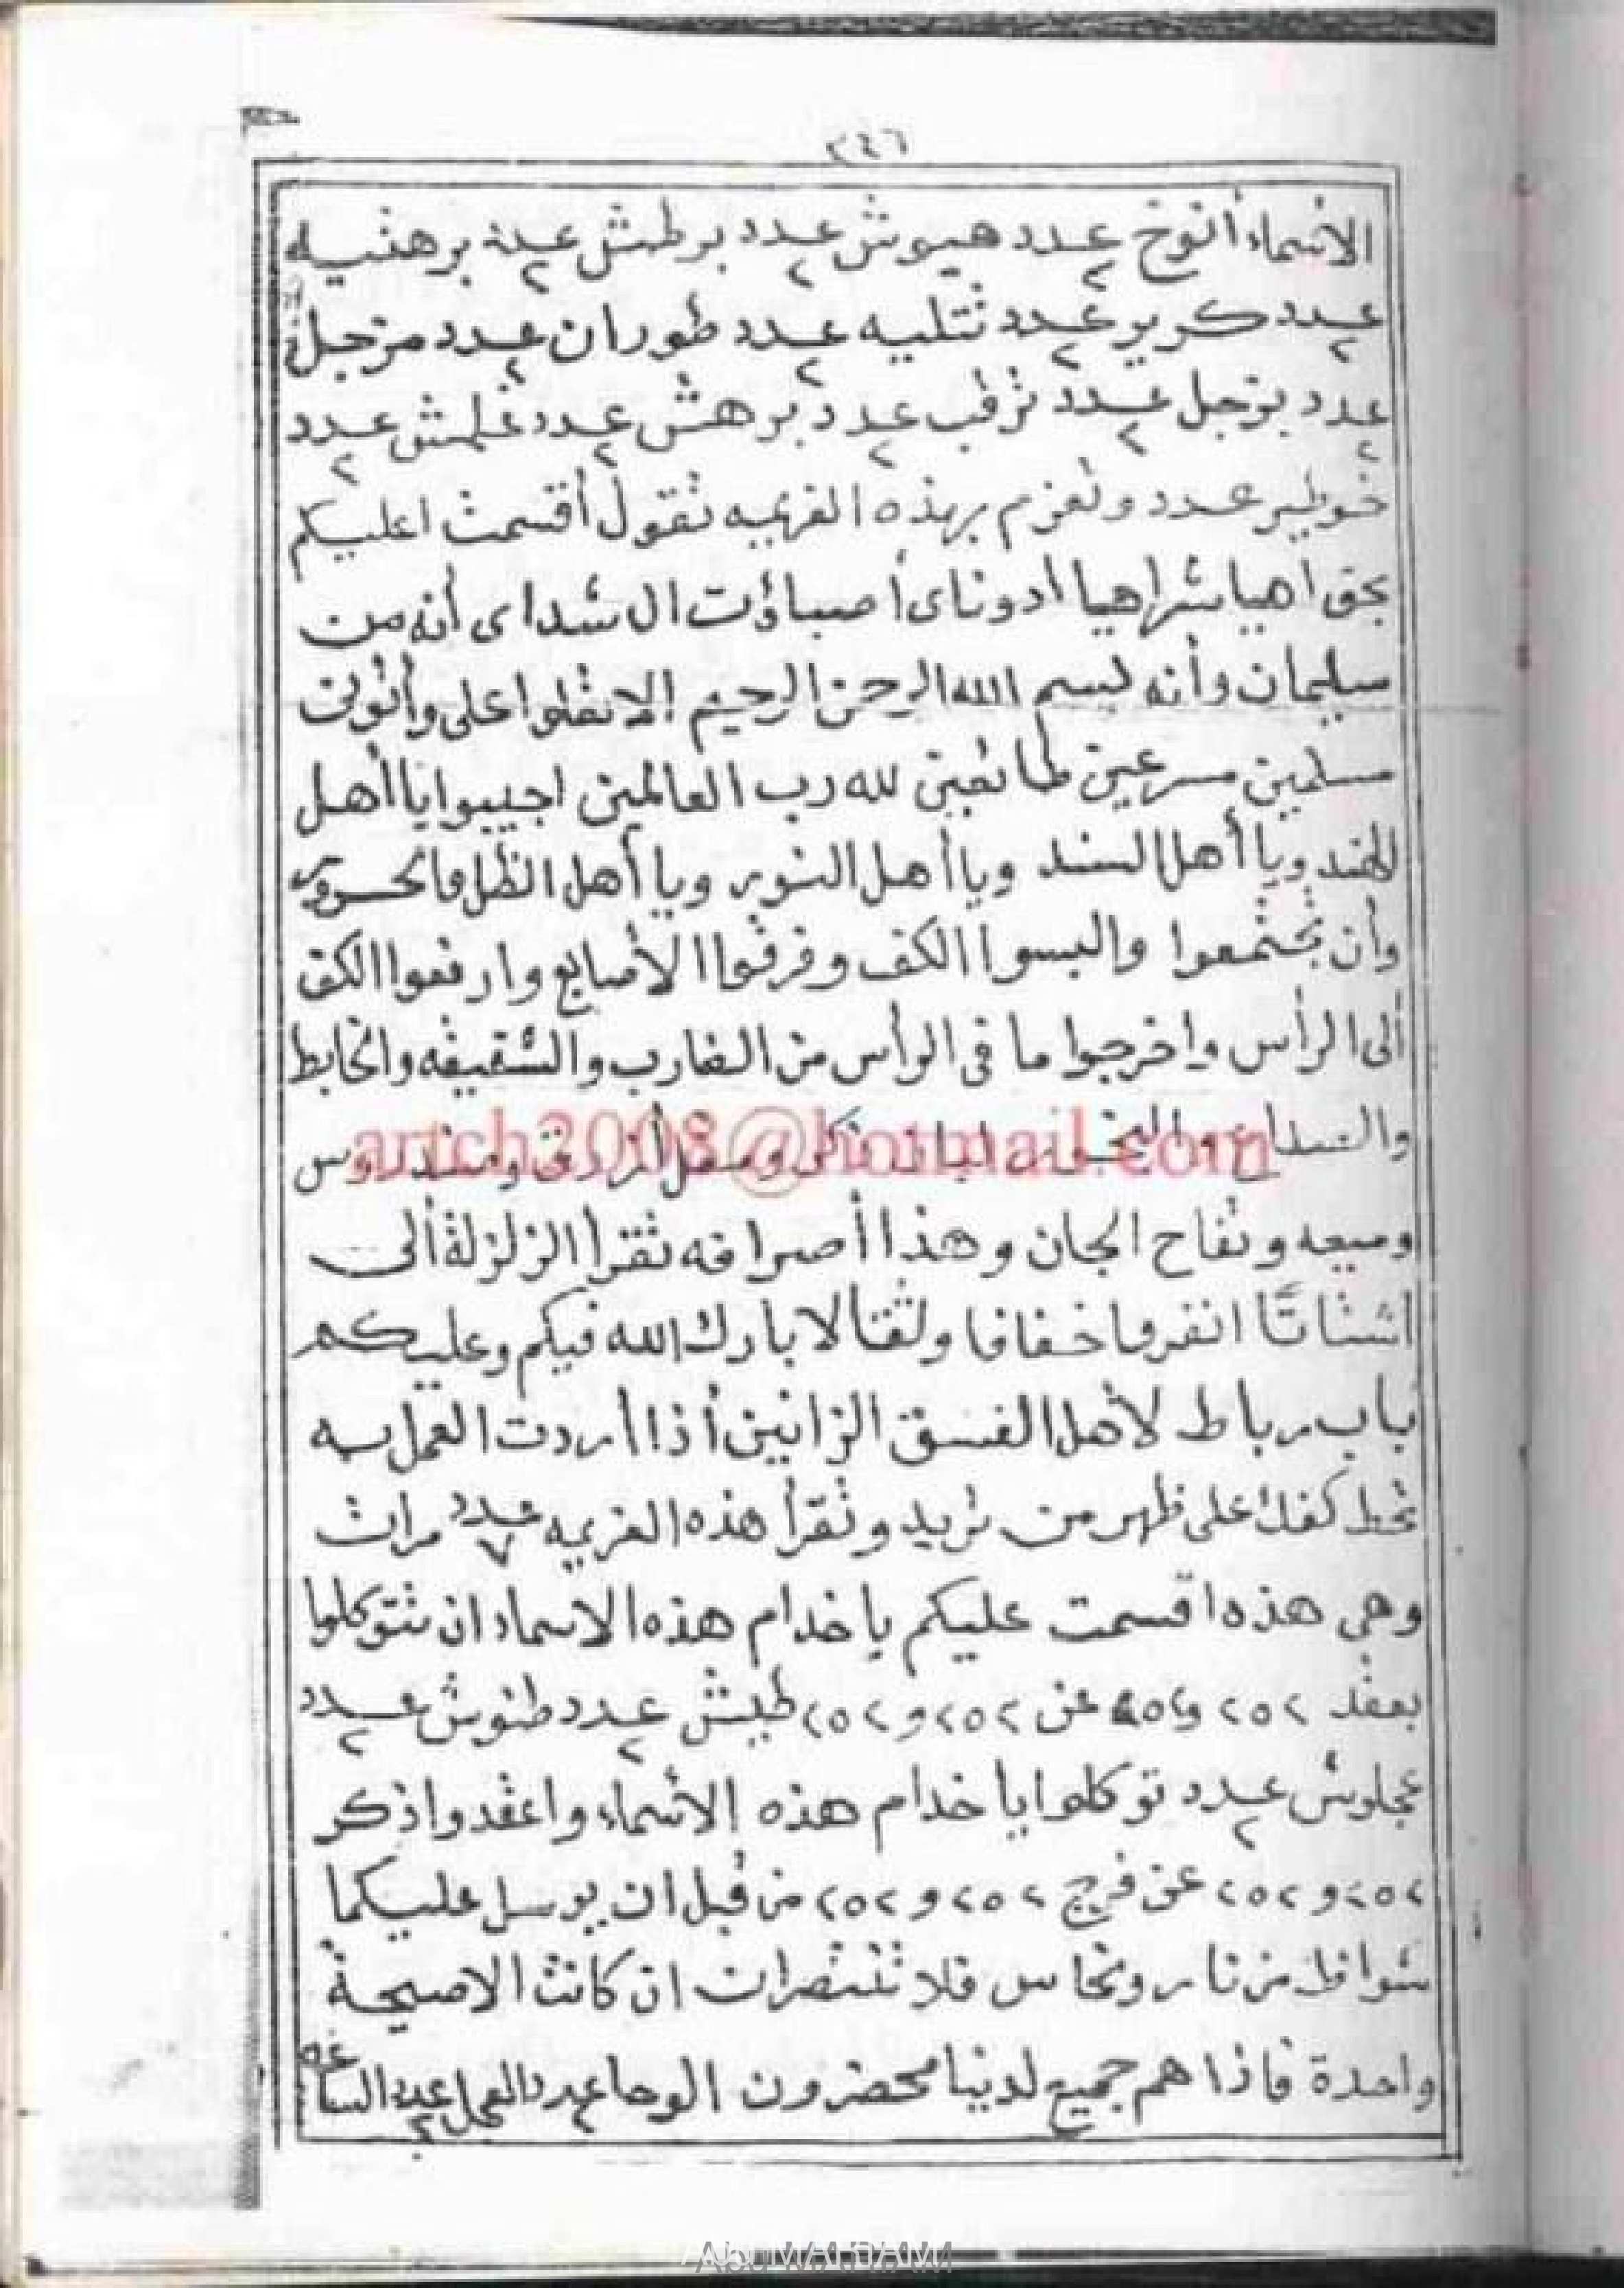 ٢٤٦
الأسماء أنوخ عدد ٢ هيوش عدد ٢ برطش عدد ٢ برهتيه
عدد ٢ كرير عدد ٢ تتليه عدد ٢ طوران عدد ٢ مزجل
عدد ٢ بزجل عدد ٢ ترقب عدد ٢ برهش عدد ٢ غلمش عدد ٢
خوطير عدد وتعزم بهذه العزيمه تقول أقسمت اعليكم
بحق اهيا شراهيا أدوناى أصباؤت ال شداى أنه من
سليمان وأنه بسم الله الرحمن الرحيم الا تعلوا على وأتونى
مسلمين مسرعين طائعين لله رب العالمين اجيبوا يا أهل
الهند ويا أهل السند ويا أهل النور ويا أهل الظل والحرور
وأن تجتمعوا والبسوا الكف وفرقوا الأصابع وارفعوا الكف
ألى الرأس واخرجوا ما فى الرأس من الضارب والشقيفه والخابط
لبان ذكر ومقل أزرق وسندروس
وميعه وتفاح الجان وهذا أصرافه تقرأ الزلزلة ألى
اشتاتًا انفروا خفافا ولثقتالا بارك الله فيكم وعليكم
باب رباط لأهل الفسق الزانين أذا اردت العمل به
تحط كفك على ظهر من تريد وتقرأ هذه العزيمه عدد ٧ مرات
وهي هذه اقسمت عليكم يا خدام هذه الاسماء ان تتوكلوا
بعقد ٢٥٢ و٢٥٤ عن ٢٥٢ و٢٥٢ طيش عدد ٢ طوش عدد ٢
عجلوش عدد ٢ توكلوا يا خدام هذه الأسماء واعقدوا ذكر
٢٥٢ و٢٥٢ عن فرج ٢٥٢ و٢٥٢ من قبل ان يرسل عليكما
شواظ من نار ونحاس فلا تنتصران ان كانت الا صيحة
واحدة فاذا هم جميع لدينا محضرون الوحا عدد ٢ العمل عدد ٢ الساعه
artch2008@hotmail.com